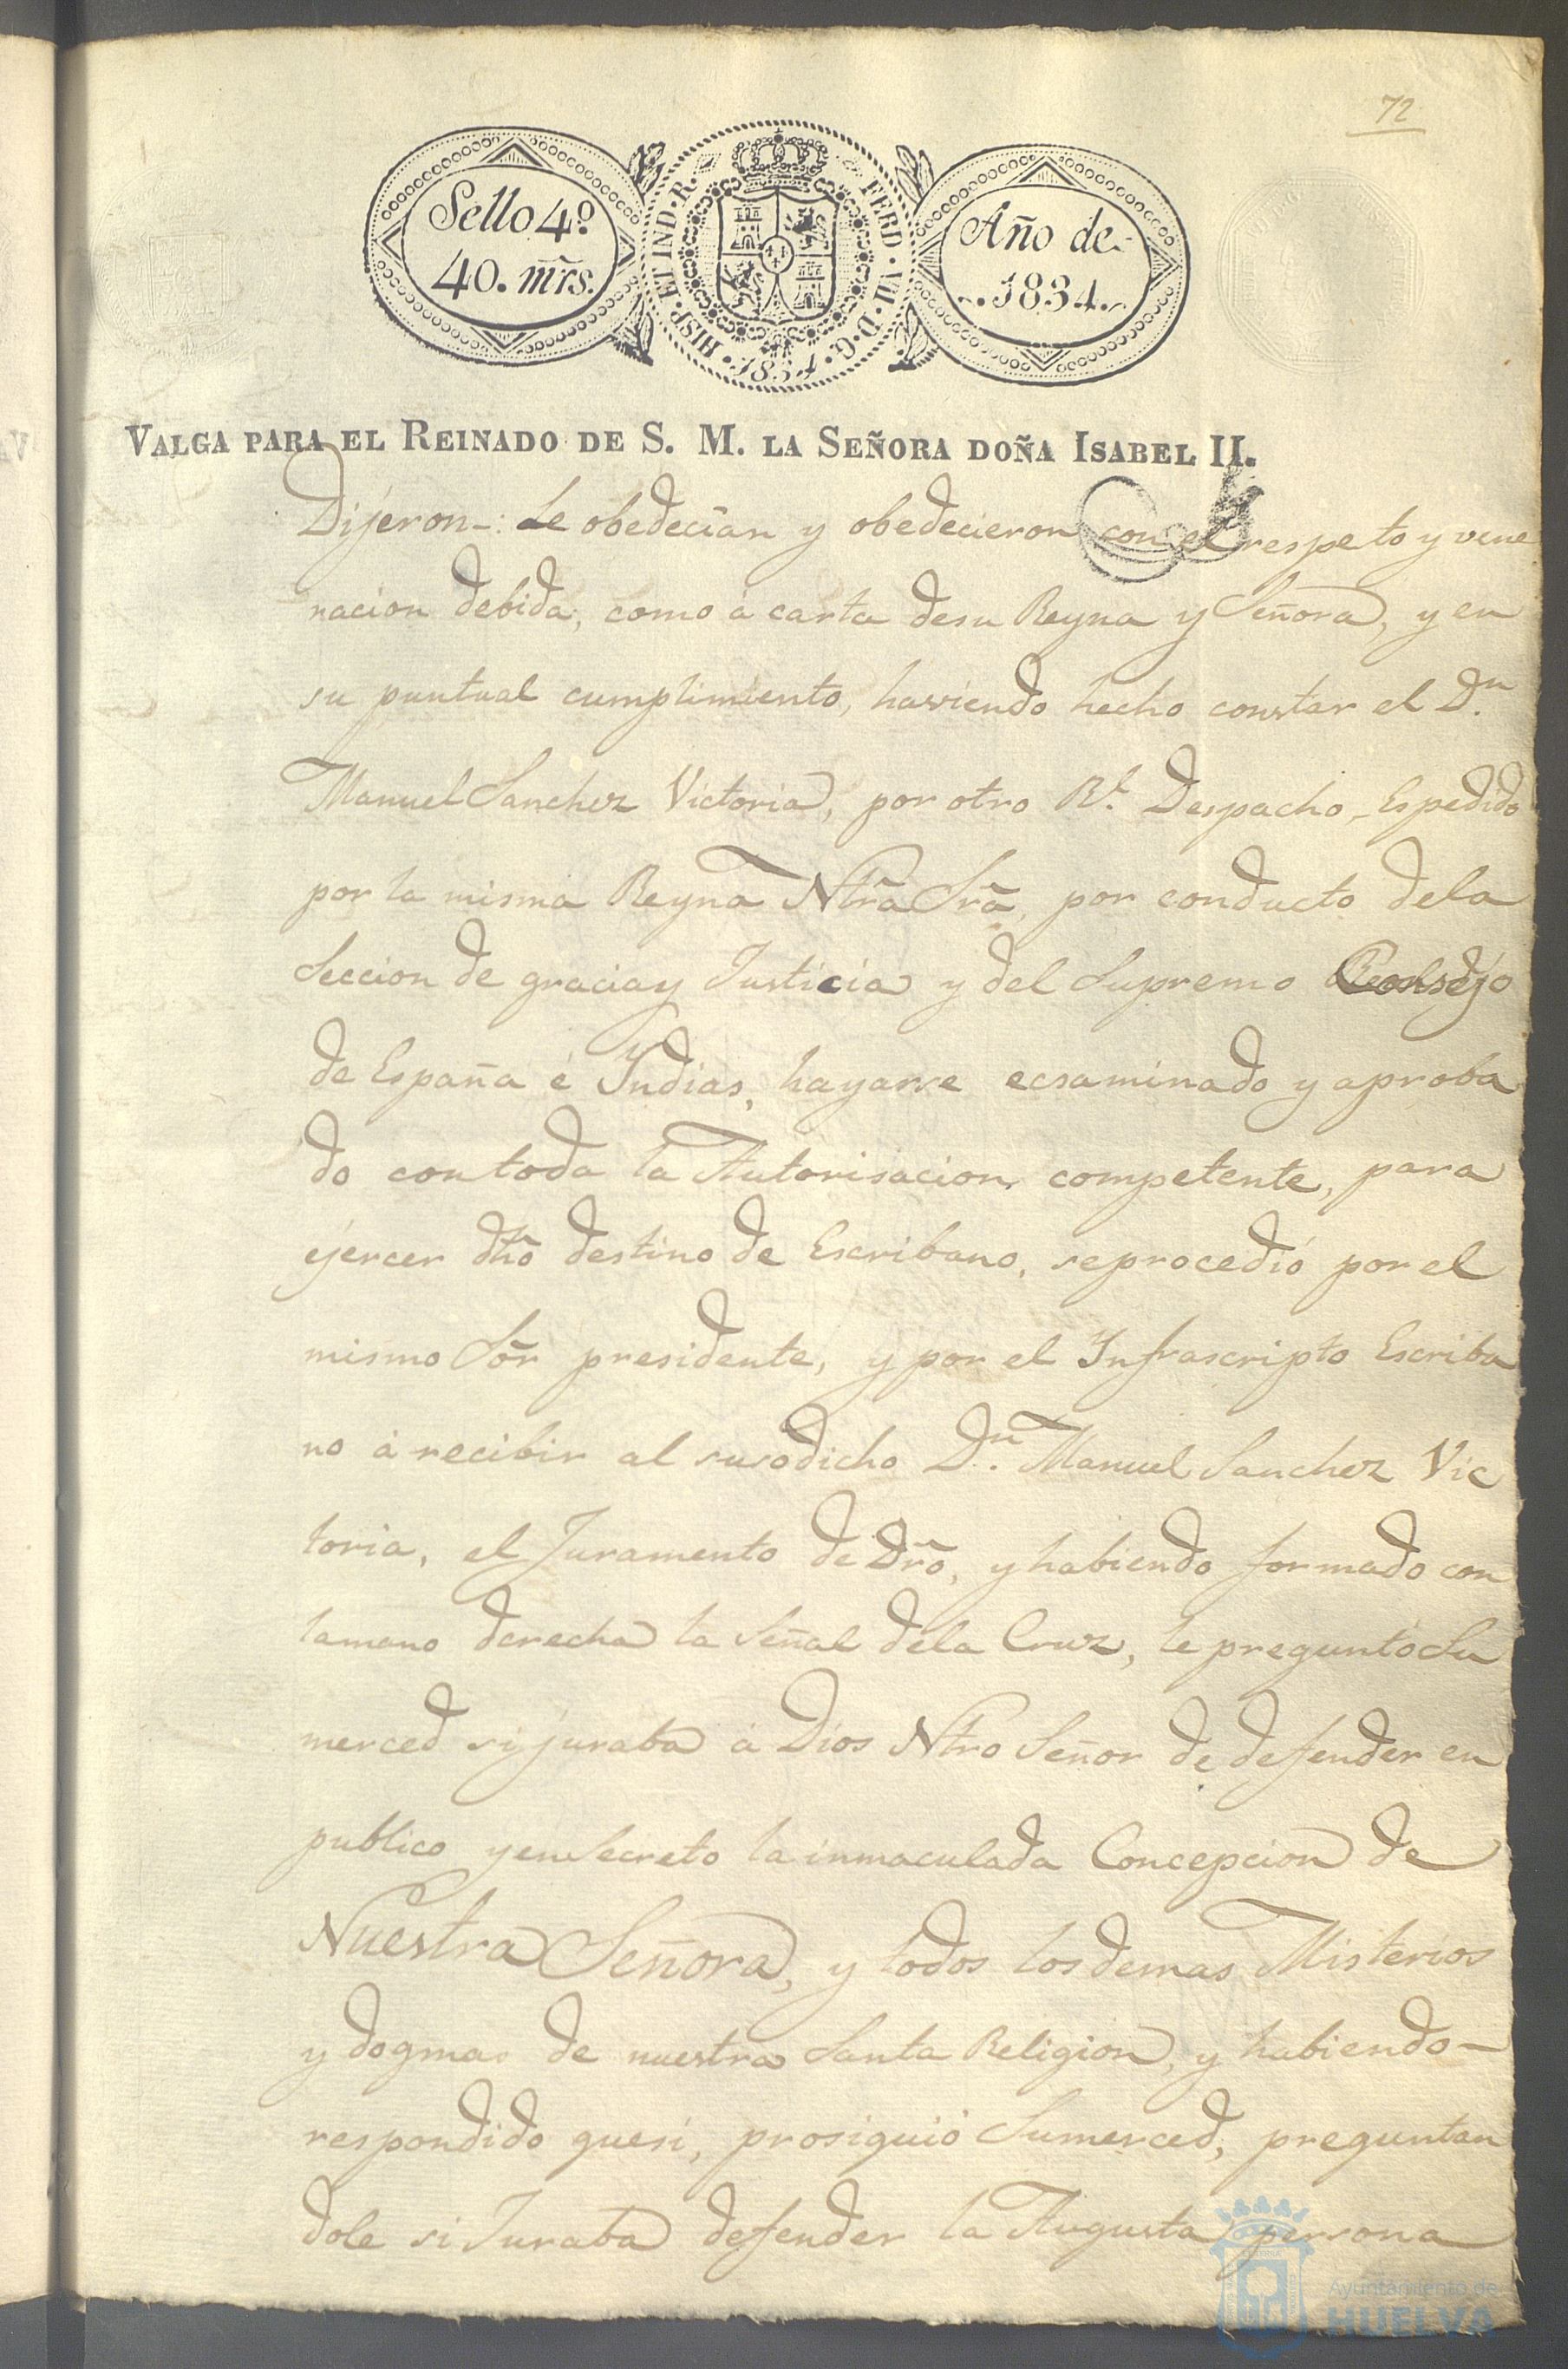 72
Sello 4º
40. mrs.
HISP. ET IND. R.
FERD. VII. D. G.
1834
Año de
1834
VALGA PARA EL REINADO DE S. M. LA SEÑORA DOÑA ISABEL II.
Dijeron: Le obedecian y obedecieron con el respeto y vene
racion debida, como á carta desu Reyna y Señora, y en
su puntual cumplimiento, haviendo hecho constar el Dn.
Manuel Sanchez Victoria, por otro Rl. Despacho, Espedido
por la misma Reyna Ntrã Srã, por conducto dela
Seccion de gracia y Justicia y del Supremo Consejo
de España é Indias, hayarse ecsaminado y aproba
do con toda la Autorisacion competente, para
ejercer dhõ destino de Escribano, seprocedió por el
mismo Sõr presidente, y por el Infrascripto Escriba
no á recibir al susodicho Dn. Manuel Sanchez Vic
toria, el Juramento de Drõ, y habiendo formado con
lamano derecha la Señal dela Cruz, le preguntó Su
merced si juraba á Dios Ntro Señor de defender en
publico y en Secreto la inmaculada Concepcion de
Nuestra Señora, y todos los demas Misterios
y dogmas de nuestra Santa Religion, y habiendo-
respondido quesi, prosiguió Sumerced, preguntan
dole si Juraba defender la Augusta persona
Ayuntamiento de
HUELVA